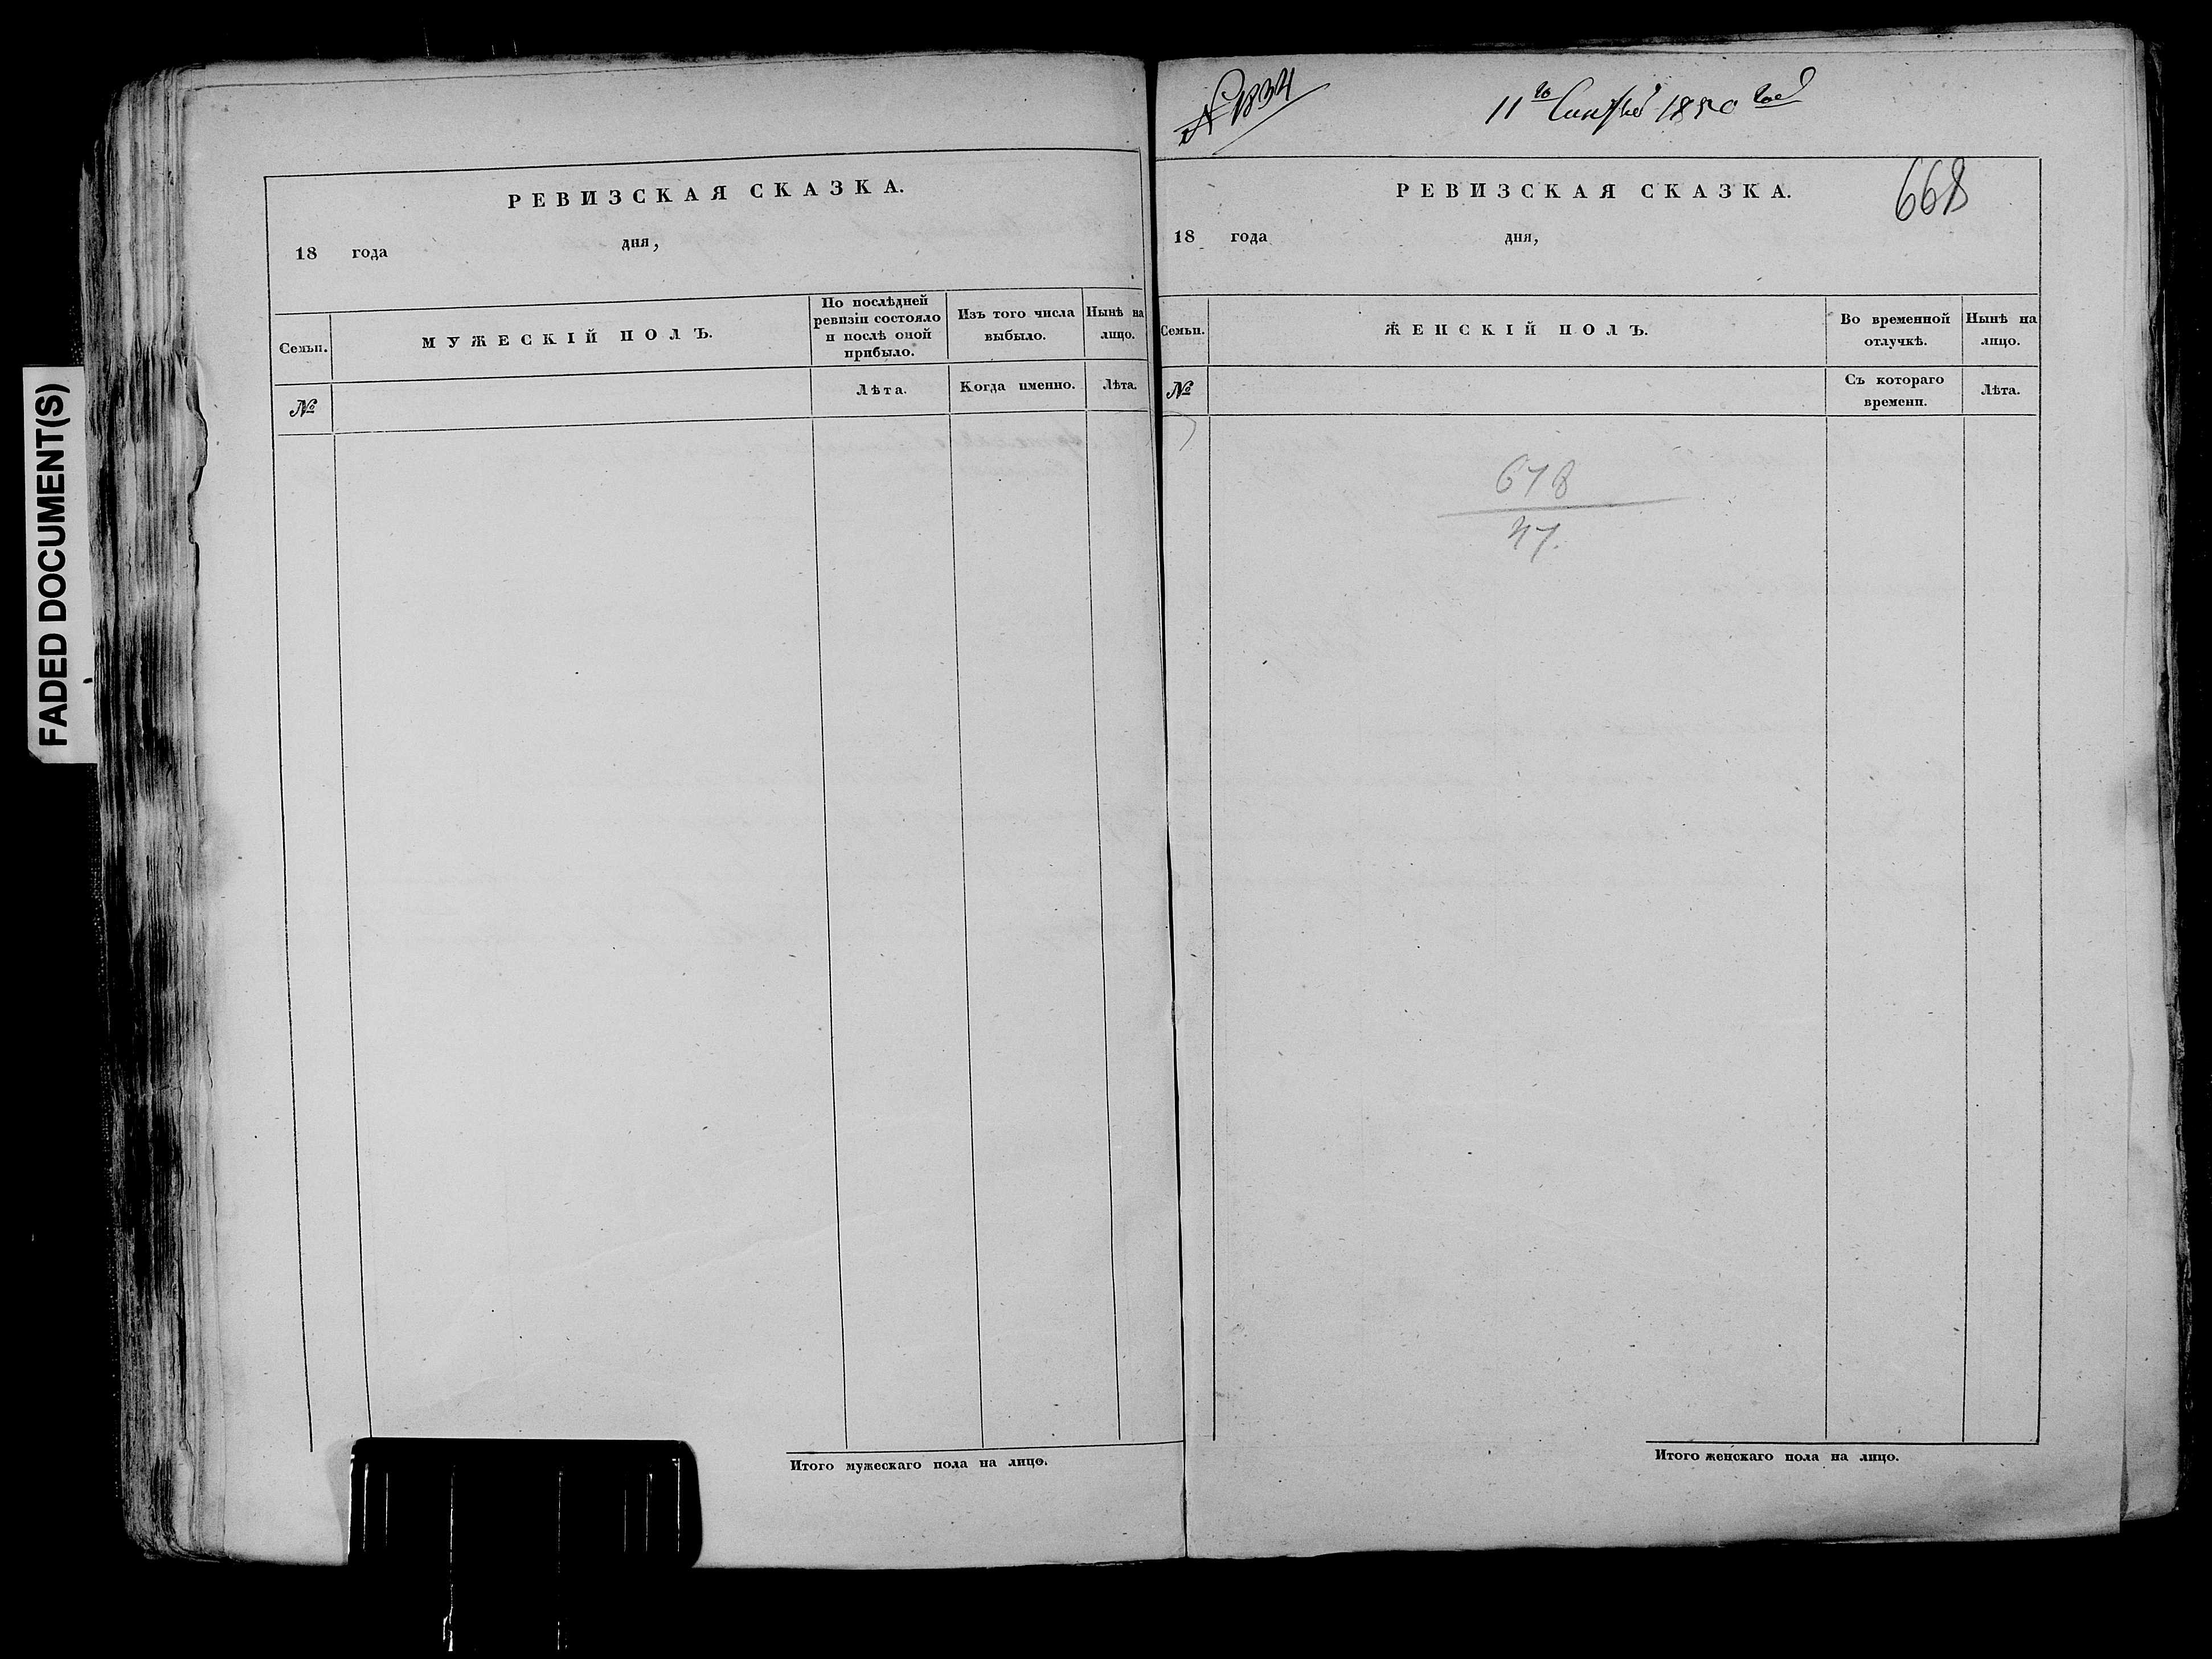 FADED DOCUMENT(S)
РЕВИЗСКАЯ СКАЗКА.
18 года дня,
Семьи.
МУЖЕСКІЙ ПОЛЪ.
По послѣдней
ревизіи состояло
и послѣ оной
прибыло.
Изъ того числа
выбыло.
Нынѣ на
лицо.
№
Лѣта.
Когда именно.
Лѣта.
Итого мужескаго пола на лицо.
№ 1834
11го 1850 года
РЕВИЗСКАЯ СКАЗКА.
668
18 года дня,
Семьи.
ЖЕНСКІЙ ПОЛЪ.
Во временной
отлучкѣ.
Нынѣ на
лицо.
№
Съ котораго
времени.
Лѣта.
678
47.
Итого женскаго пола на лицо.